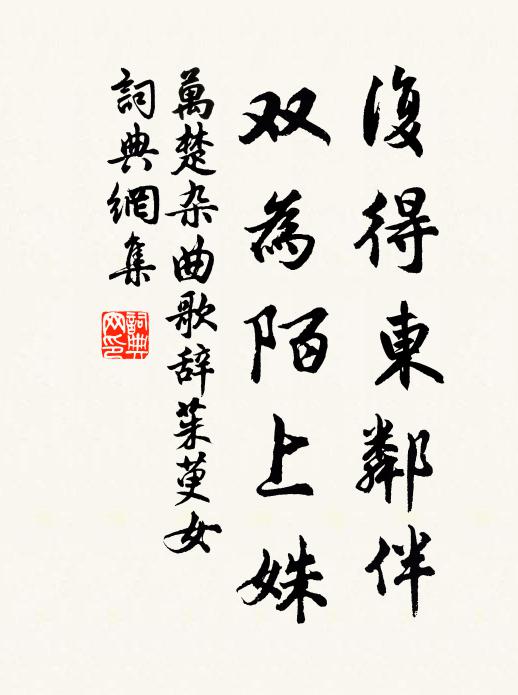 復得東鄰伴
双為陌上姝
萬楚杂曲歌辞茱萸女
詞典網集
詞典網印